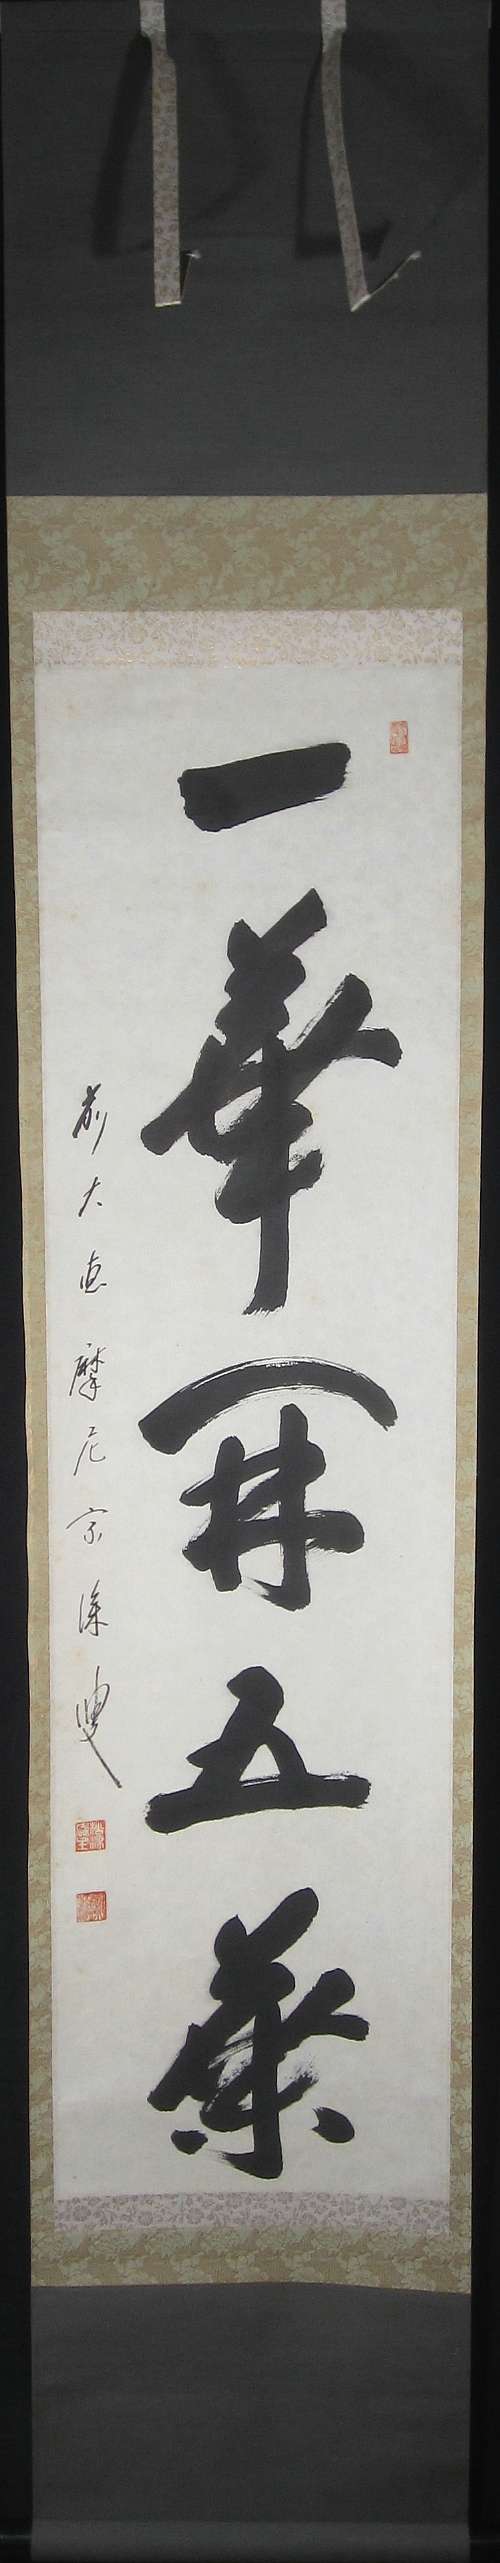 一華開五葉
前大徳摩尼宗深叟